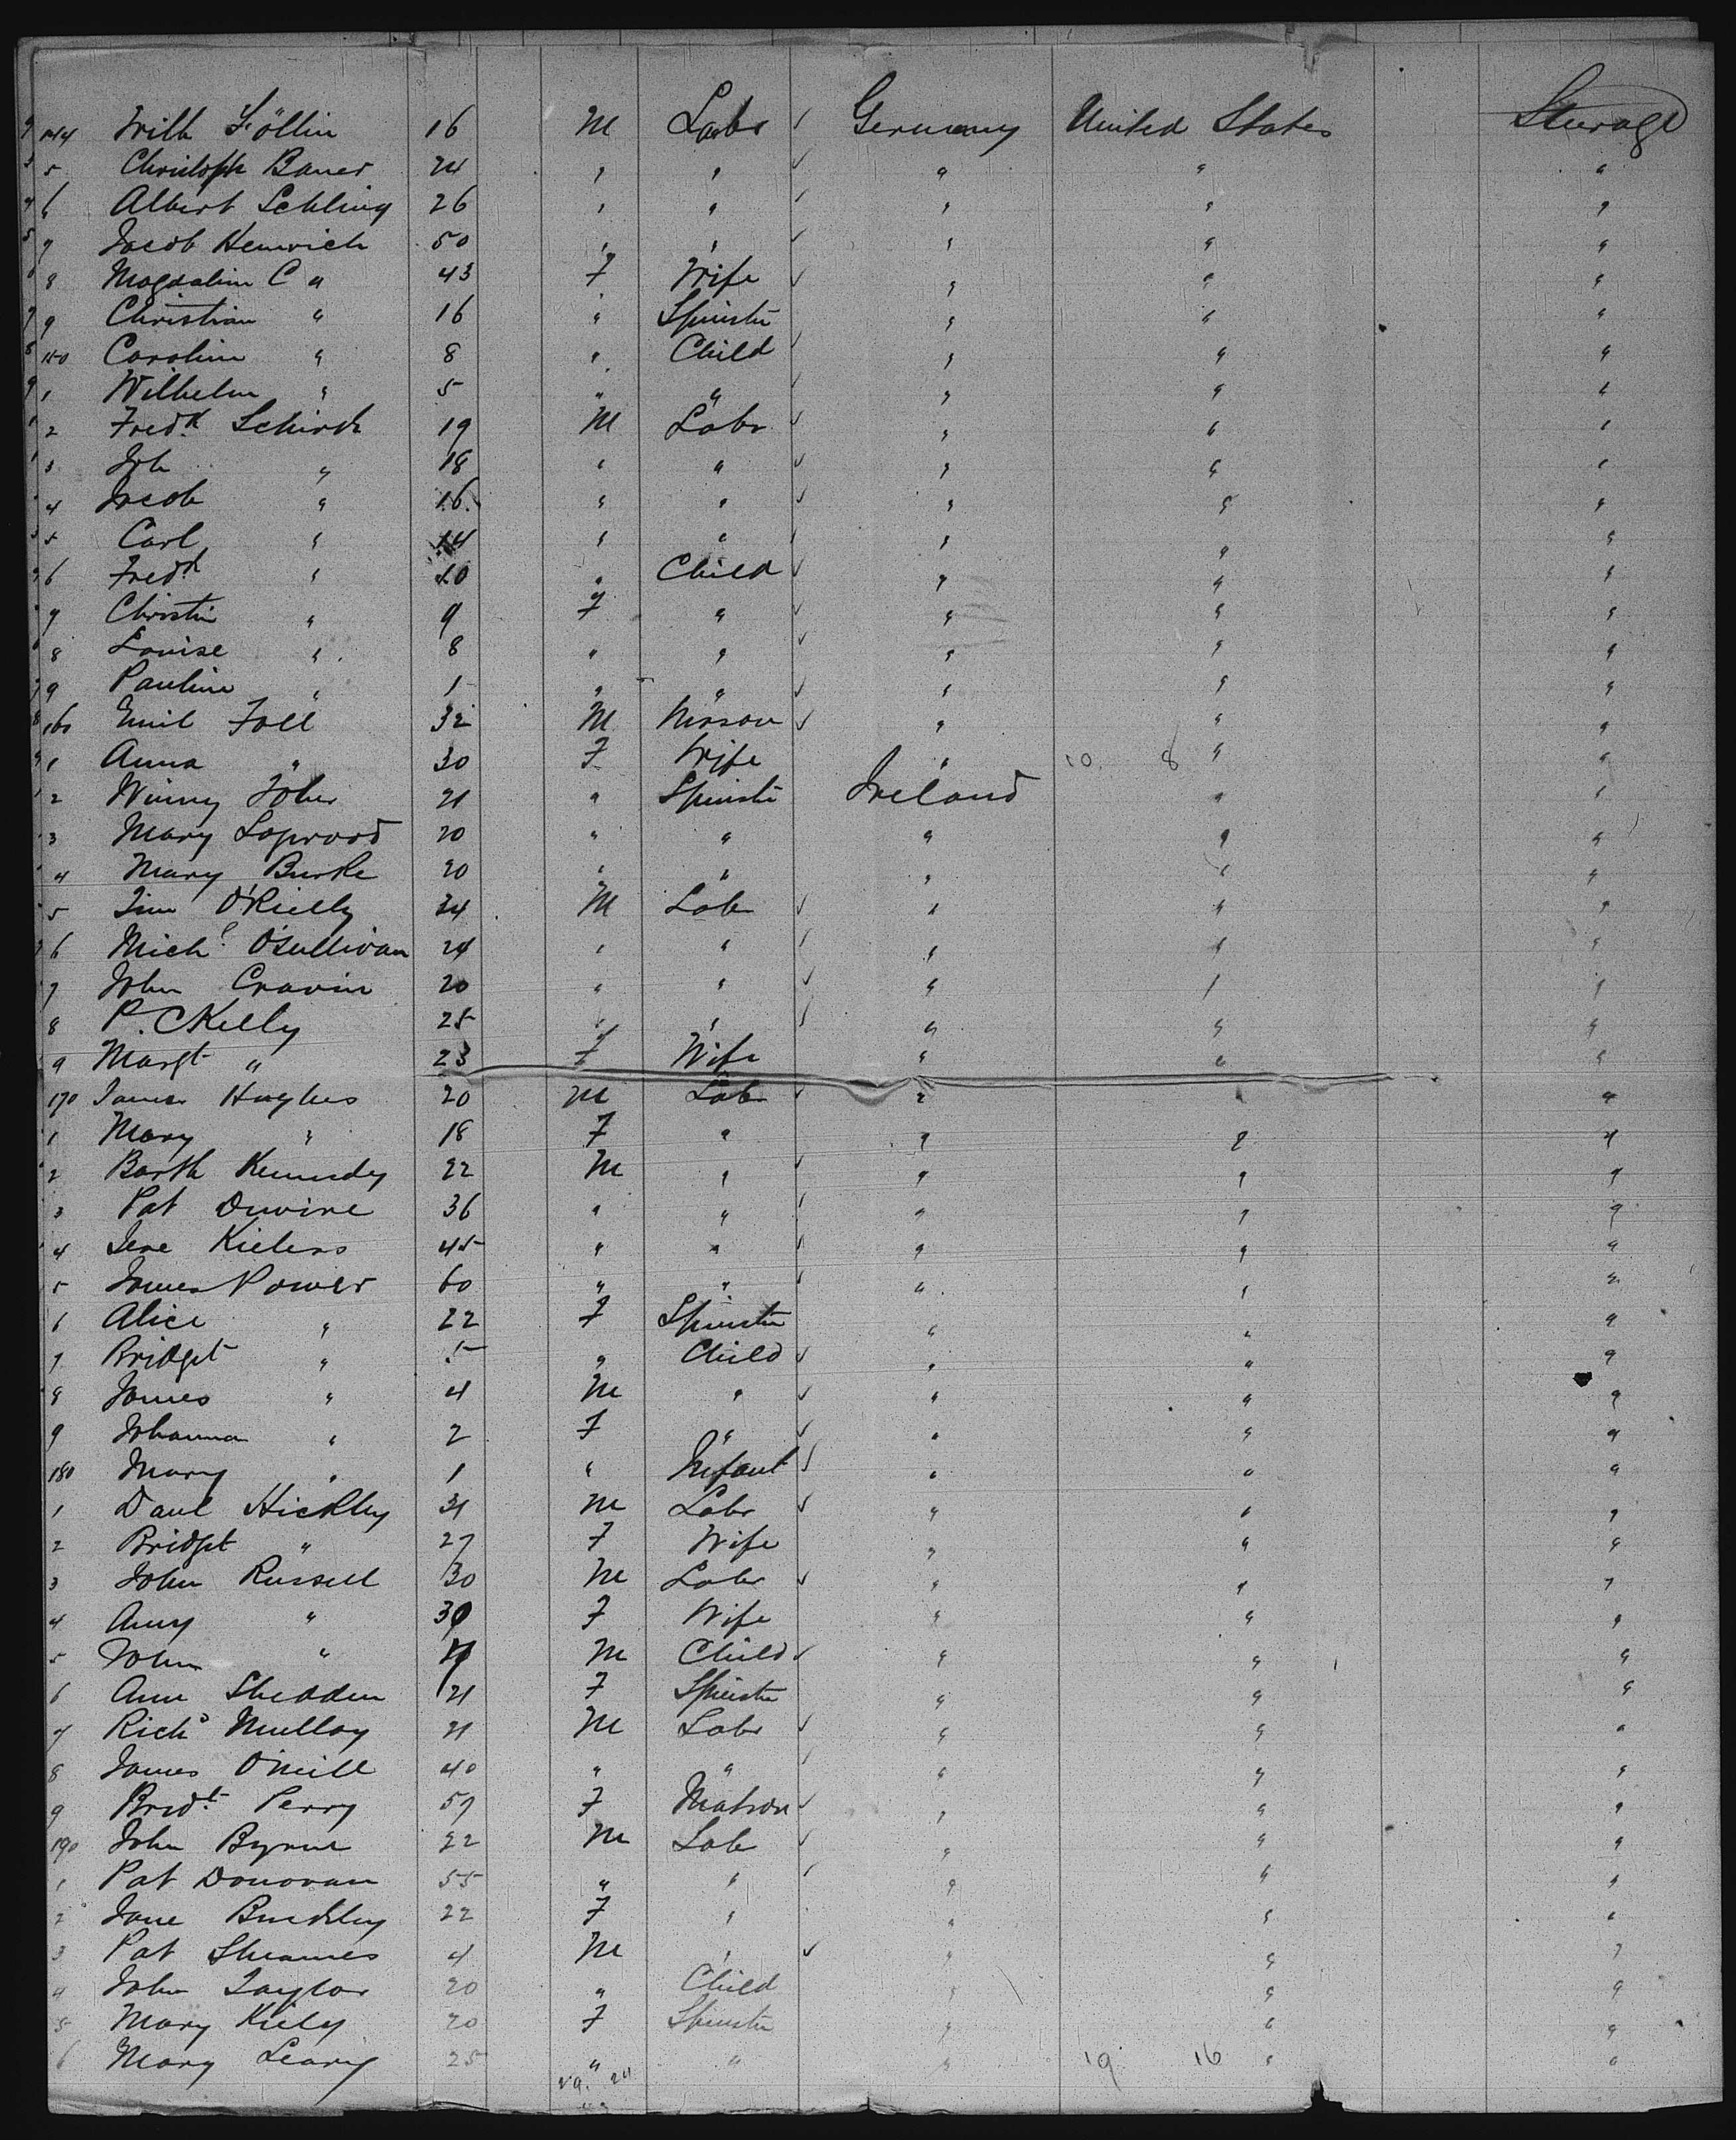 144 Wilh Föllin 16 M Labr ✓ Germany United States Steerage
5 Christoph Bauer 24 " " ✓ " " "
6 Albert Schling 26 " " ✓ " " "
7 Jacob Henrich 50 " " ✓ " " "
8 Magdalin C " 43 F Wife ✓ " " "
9 Christian " 16 " Spinster " " "
150 Carolin " 8 " Child ✓ " " "
1 Wilhelm " 5 " " ✓ " " "
2 Fredk 19 M Labr ✓ " " "
3 Joh " 18 " " ✓ " " "
4 Jacob " 16 " " ✓ " " "
5 Carl " 14 " " ✓ " " "
6 Fredk " 10 " Child ✓ " " "
7 Christin " 9 F " ✓ " " "
8 Louise " 8 " " ✓ " " "
9 Pauline " 1 " " ✓ " " "
160 Emil Foll 32 M ✓ " " "
1 Anna " 30 F Wife " 10 8 " "
2 Winny 21 " Spinstr Ireland " "
3 Mary 20 " " " " "
4 Mary Burke 20 " " " " "
5 Jim O'Rielly 34 M Lab ✓ " " "
6 Michl O'Sullivan 24 " " ✓ " " "
7 John Cravin 20 " " ✓ " " "
8 P. C Kelly 25 " " ✓ " " "
9 Margt " 23 F Wife " " "
170 James Hughes 20 M Lab ✓ " " "
1 Mary " 18 F " " " "
2 Barth Kennedy 22 M " ✓ " " "
3 Pat Dwine 36 " " ✓ " " "
4 Jere 45 " " ✓ " " "
5 James Power 60 " " ✓ " " "
6 Alice " 22 F Spinster " " "
7 Bridget " 5 " Child ✓ " " "
8 James " 4 M " ✓ " " "
9 Johanna " 2 F " ✓ " " "
180 Mary " 1 " Infant ✓ " " "
1 Danl Hickley 31 M Labr ✓ " " "
2 Bridget " 27 F Wife " " "
3 John Russell 30 M Labr ✓ " " "
4 Amy " 30 F Wife " " "
5 John " M Child ✓ " " "
6 Ann Shedden 21 F Spinstr " " "
7 Richd Mulloy 21 M Labr ✓ " " "
8 James O'Neill 40 " " ✓ " " "
9 Bridt Perry 57 F Matron ✓ " " "
190 John Byrne 22 M Lab ✓ " " "
1 Pat Donovan 55 " " ✓ " " "
2 Jane Buckley 22 F " " " "
3 Pat 4 M " ✓ " " "
4 John Taylor 20 " Child " " "
5 Mary Kiely 20 F Spinstr " " "
6 Mary Leary 25 " " " 19 16 " "